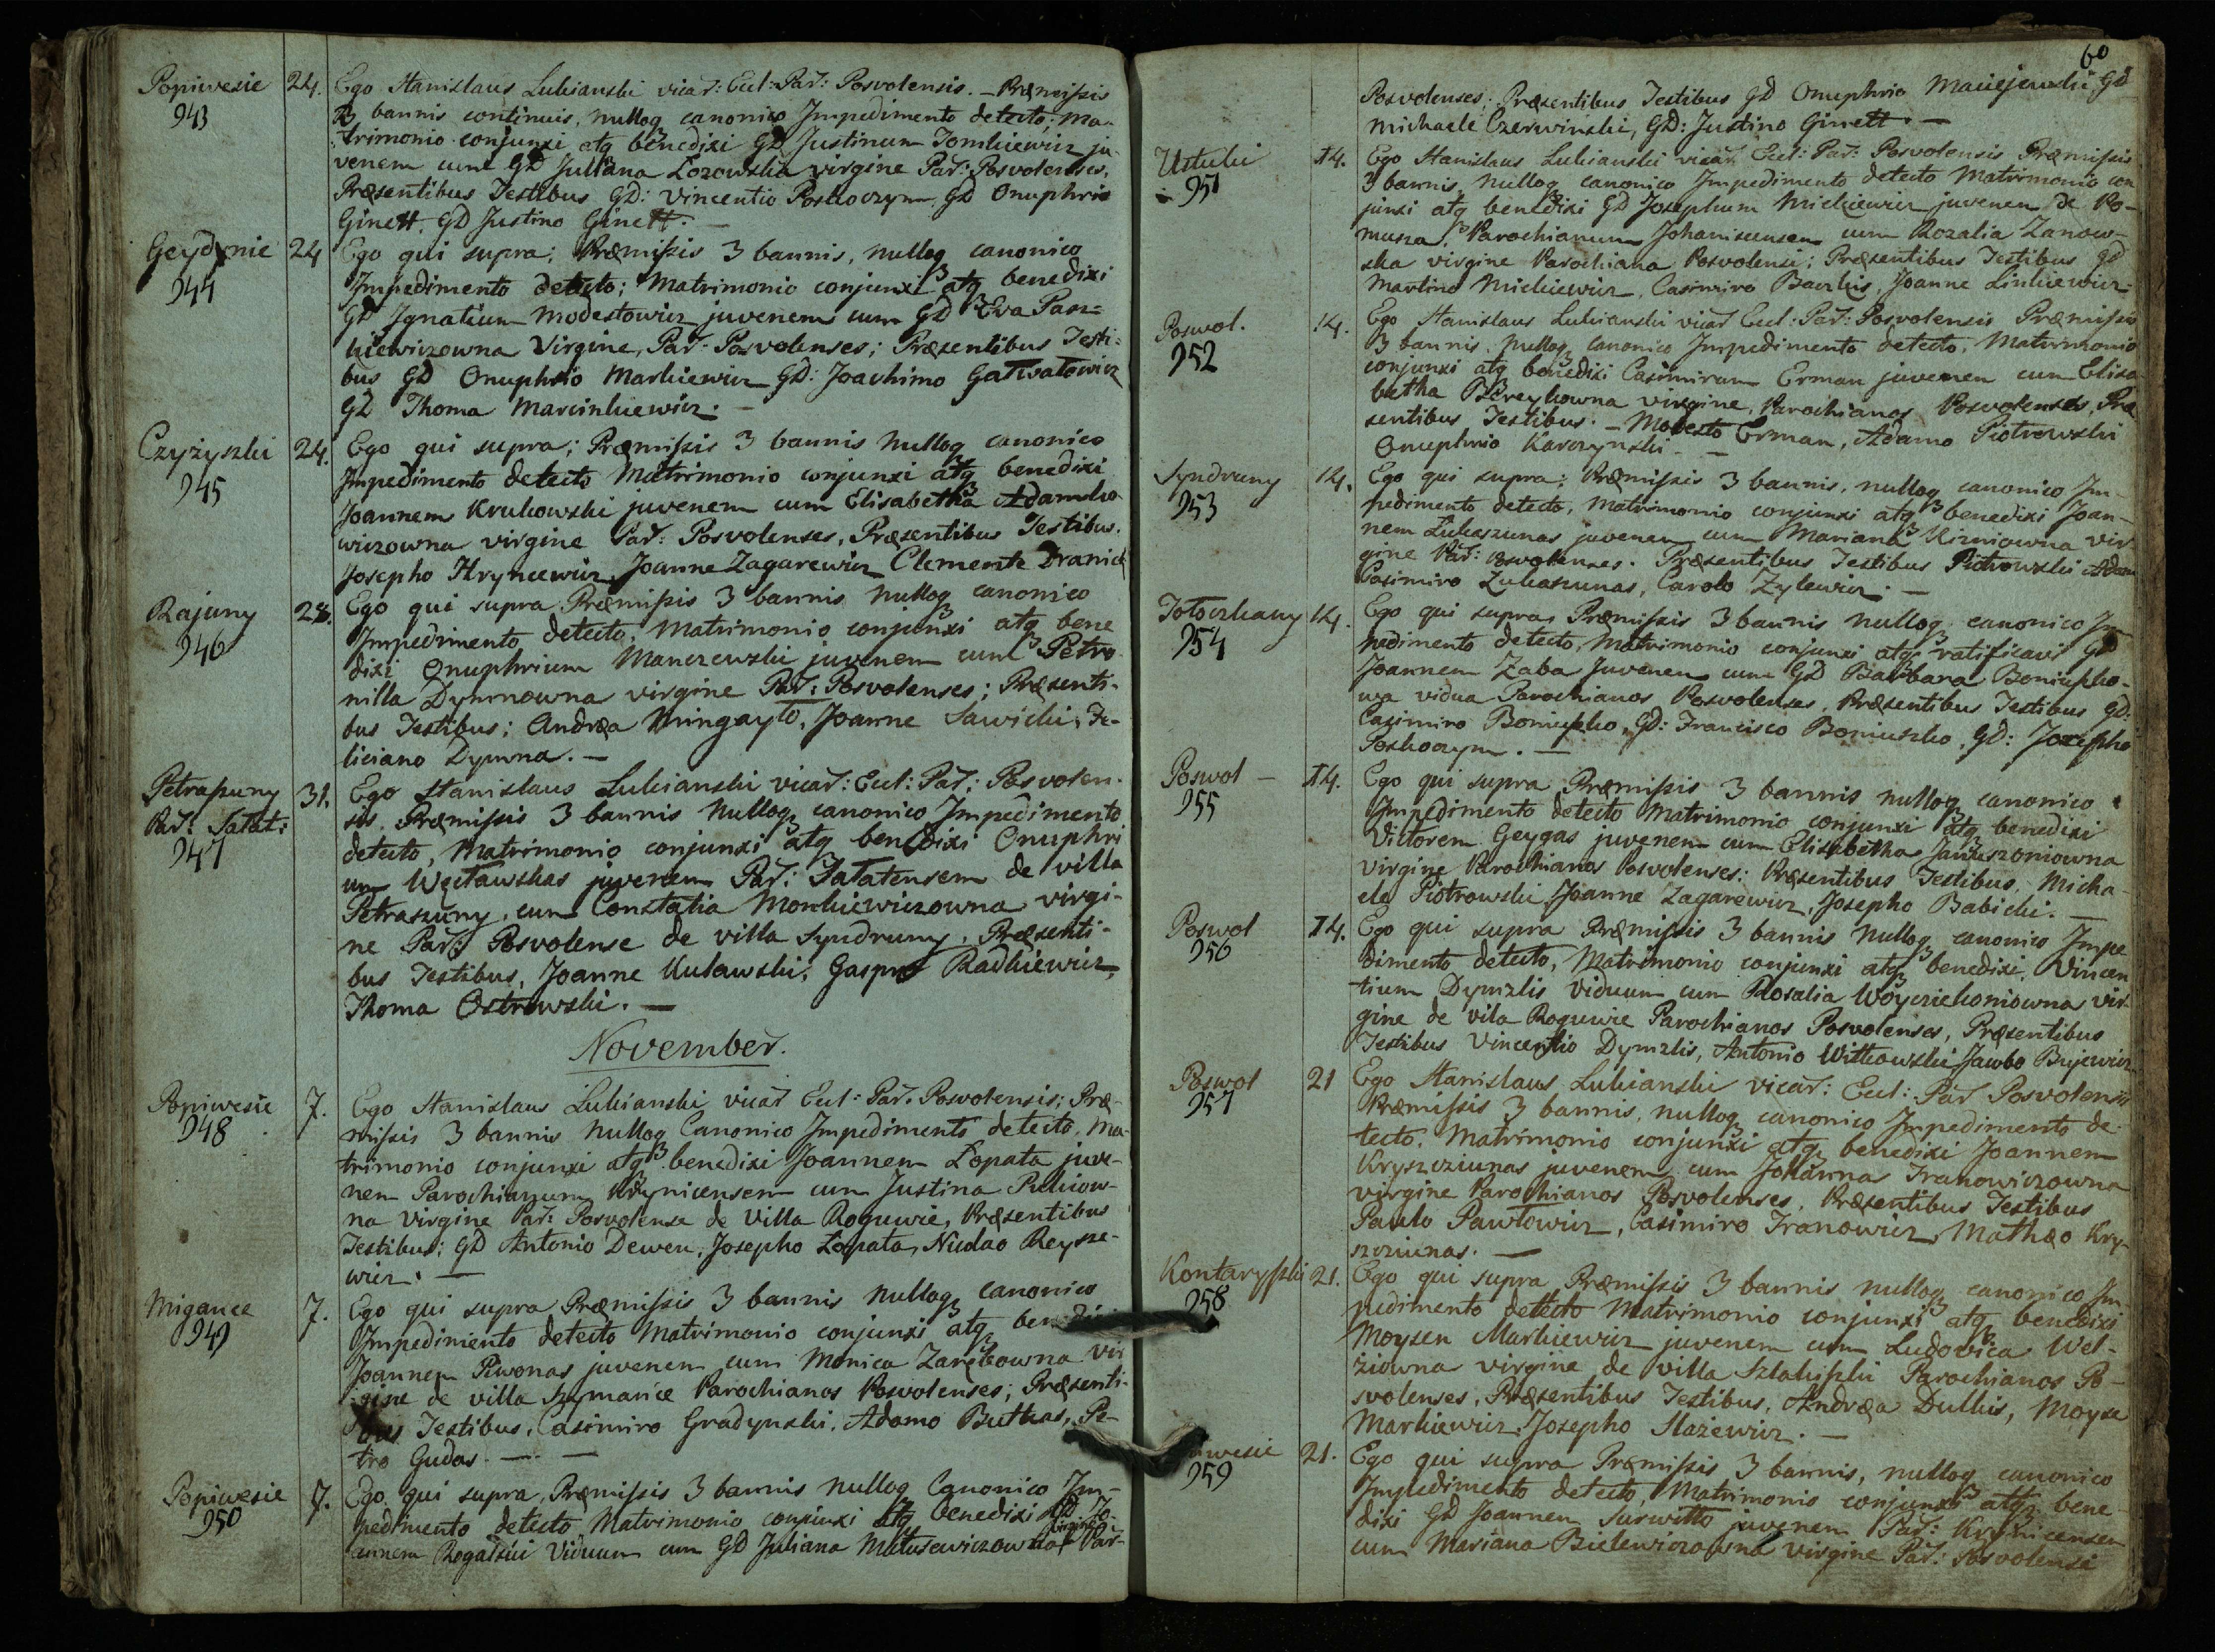 Poniwesie
943
24.
Ego Stanislaus Lukianski vicar: Eccl: Par: Posvolensis. – Præmissis
3 bannis continuis, nulloq canonico Impedimento detecto, Ma-
trimonio conjunxi atq benedixi GD Justinum Tomkiewicz ju-
venem cum GD Juliana Łozowska virgine Par: Posvolenses,
Præsentibus Testibus GD: Vincentio Poskoczym, GD Onuphrio
Ginett, GD Justino Ginett. –
Geydynie
944
24
Ego qui supra; Præmissis 3 bannis, nulloq canonico
Impedimento detecto; Matrimonio conjunxi atq benedixi
GD Ignatium Modestowicz juvenem cum GD Eva Pasz-
kiewiczowna Virgine, Par: Posvolenses; Præsentibus Testi-
bus GD Onuphrio Markiewicz GD: Joachimo
GD Thoma Marcinkiewicz. –
Czyżyszki
945
24.
Ego qui supra; Præmissis 3 bannis nulloq canonico
Impedimento detecto Matrimonio conjunxi atq benedixi
Joannem Krukowski juvenem cum Elisabetha Adamko-
wiczowna virgine Par: Posvolenses, Præsentibus Testibus.
Josepho Hryncewicz, Joanne Zagarewicz Clemente
Rajuny
946
28.
Ego qui supra Præmissis 3 bannis nulloq canonico
Impedimento detecto, Matrimonio conjunxi atq bene
dixi Onuphrium Manczewski juvenem cum Petro-
nilla Dymnowna virgine Par: Posvolenses; Præsenti-
bus Testibus; Andræa Mingayło, Joanne Sawicki, Fe-
liciano Dymna. –
Petraszuny
Par: Sałat:
947
31.
Ego Stanislaus Lukianski vicar: Eccl: Par: Posvolen-
sis. Præmissis 3 bannis nulloq canonico Impedimento
detecto, Matrimonio conjunxi atq benedixi Onuphri
um Węcławskas juvenem Par: Sałatensem de villa
Petraszuny, cum Constatia Monkiewiczowna virgi-
ne Par: Posvolense de villa Syndruny, Præsenti-
bus Testibus, Joanne Kulawski, Gaspro Radkiewicz,
Thoma Ostrowski. –
November.
Poniwesie
948
7.
Ego Stanislaus Lukianski vicar Eccl: Par. Posvolensis; Præ-
missis 3 bannis nulloq Canonico Impedimento detecto, Ma-
trimonio conjunxi atq benedixi Joannem Łopata juve-
nem Parochianum Krynicensem cum Justina
na Virgine Par: Posvolense de Villa Roguwie, Præsentibus
Testibus; GD Antonio Dewen, Josepho Łopata, Nicolao Reysze-
wicz. –
Migance
949
7.
Ego qui supra Præmissis 3 bannis nulloq canonico
Impedimento detecto Matrimonio conjunxi atq benedixi
Joannem Piwonas juvenem cum Monica Zarębowna vir
gine de villa Szymańce Parochianos Posvolenses; Præsenti-
bus Testibus, Casimiro Gradynski, Adamo Butkas, Pe-
tro Gudas. – –
Poniwesie
950
7.
Ego qui supra, Præmissis 3 bannis nulloq Canonico Im-
pedimento detecto Matrimonio conjunxi atq benedixi GD Jo-
annem Rogalski Viduum cum GD Juliana Matusewiczowna virgine Par:
60
Posvolenses; Præsentibus Testibus GD Onuphrio Maciejewski, GD
Michaele Czerwinski, GD: Justino Ginett. –
Ustuki
951
14.
Ego Stanislaus Lukianski vicar Eccl: Par: Posvolensis Præmissis
3 bannis, nulloq canonico Impedimento detecto Matrimonio con
junxi atq benedixi GD Josephum Mickiewicz juvenem de Po-
musza, Parochianum Johaniscensem cum Rozalia Zanow-
ska virgine Parochiana Posvolensi; Præsentibus Testibus GD
Martino Mickiewicz, Casimiro Baukis, Joanne Linkiewicz.
Poswol.
952
14.
Ego Stanislaus Lukianski vicar Eccl: Par: Posvolensis Præmissis
3 bannis, nulloq canonico Impedimento detecto, Matrimonio
conjunxi atq benedixi Casimirum Erman juvenem cum Elisa
betha virgine, Parochianos Posvolenses, Præ
sentibus Testibus. – Modesto Erman, Adamo Piotrowski
Onuphrio Karczynski. –
Syndruny
953
14.
Ego qui supra; Præmissis 3 bannis, nulloq canonico Im-
pedimento detecto, Matrimonio conjunxi atq benedixi Joan-
nem Łukaszunas juvenem cum Mariana Kizniowna vir
gine Par: Posvolenses. Præsentibus Testibus Piotrowski Adam
Casimiro Łukaszunas, Carolo Zylewicz. –
Tołoczkany
954
14.
Ego qui supra, Præmissis 3 bannis nulloq canonico Im
pedimento detecto, Matrimonio conjunxi atq ratificavi GD
Joannem Zaba Juvenem cum GD Barbara Boniuszko-
wa vidua Parochianos Posvolenses, Præsentibus Testibus GD:
Casimiro Boniuszko, GD: Francisco Boniuszko, GD: Josepho
Poskoczym. –
Poswol –
955
14.
Ego qui supra Præmissis 3 bannis nulloq canonico
Impedimento detecto Matrimonio conjunxi atq benedixi
Victorem Geygas juvenem cum Elisabetha Januszoniowna
virgine Parochianos Posvolenses: Præsentibus Testibus, Micha-
ele Piotrowski, Joanne Zagarewicz, Josepho Babicki. –
Poswol
956
14.
Ego qui supra Præmissis 3 bannis nulloq canonico Impe
dimento detecto, Matrimonio conjunxi atq benedixi, Vincen
tium Dymzlis Viduum cum Rosalia Woyciekoniowna vir-
gine de vila Roguwie Parochianos Posvolenses, Præsentibus
Testibus Vincentio Dymzlis, Antonio Witkowski, Jacobo Bujewicz
Poswol
957
21
Ego Stanislaus Lukianski vicar: Eccl: Par Posvolensis
Præmissis 3 bannis, nulloq canonico Impedimento de-
tecto. Matrimonio conjunxi atq benedixi Joannem
Kryszcziunas juvenem cum Johanna Franowiczowna
virgine Parochianos Posvolenses, Præsentibus Testibus
Paulo Pawłowicz, Casimiro Franowicz, Mathæo Kry-
szcziunas. –
Kontaryszki
958
21.
Ego qui supra Præmissis 3 bannis nulloq canonico Im
pedimento detecto Matrimonio conjunxi atq benedixi
Moysen Markiewicz juvenem cum Ludovica Wel-
ziowna virgine de villa Szlakiszki Parochianos Po-
svolenses, Præsentibus Testibus, Andræa Dulkis, Moyse
Markiewicz, Josepho Stazewicz. –
959
21.
Ego qui supra Præmissis 3 bannis, nulloq canonico
Impedimento detecto, Matrimonio conjunxi atq bene-
dixi GD Joannem Surwiłło juvenem Par: Krynicensem
cum Mariana Bielewiczowna virgine Par: Posvolensi